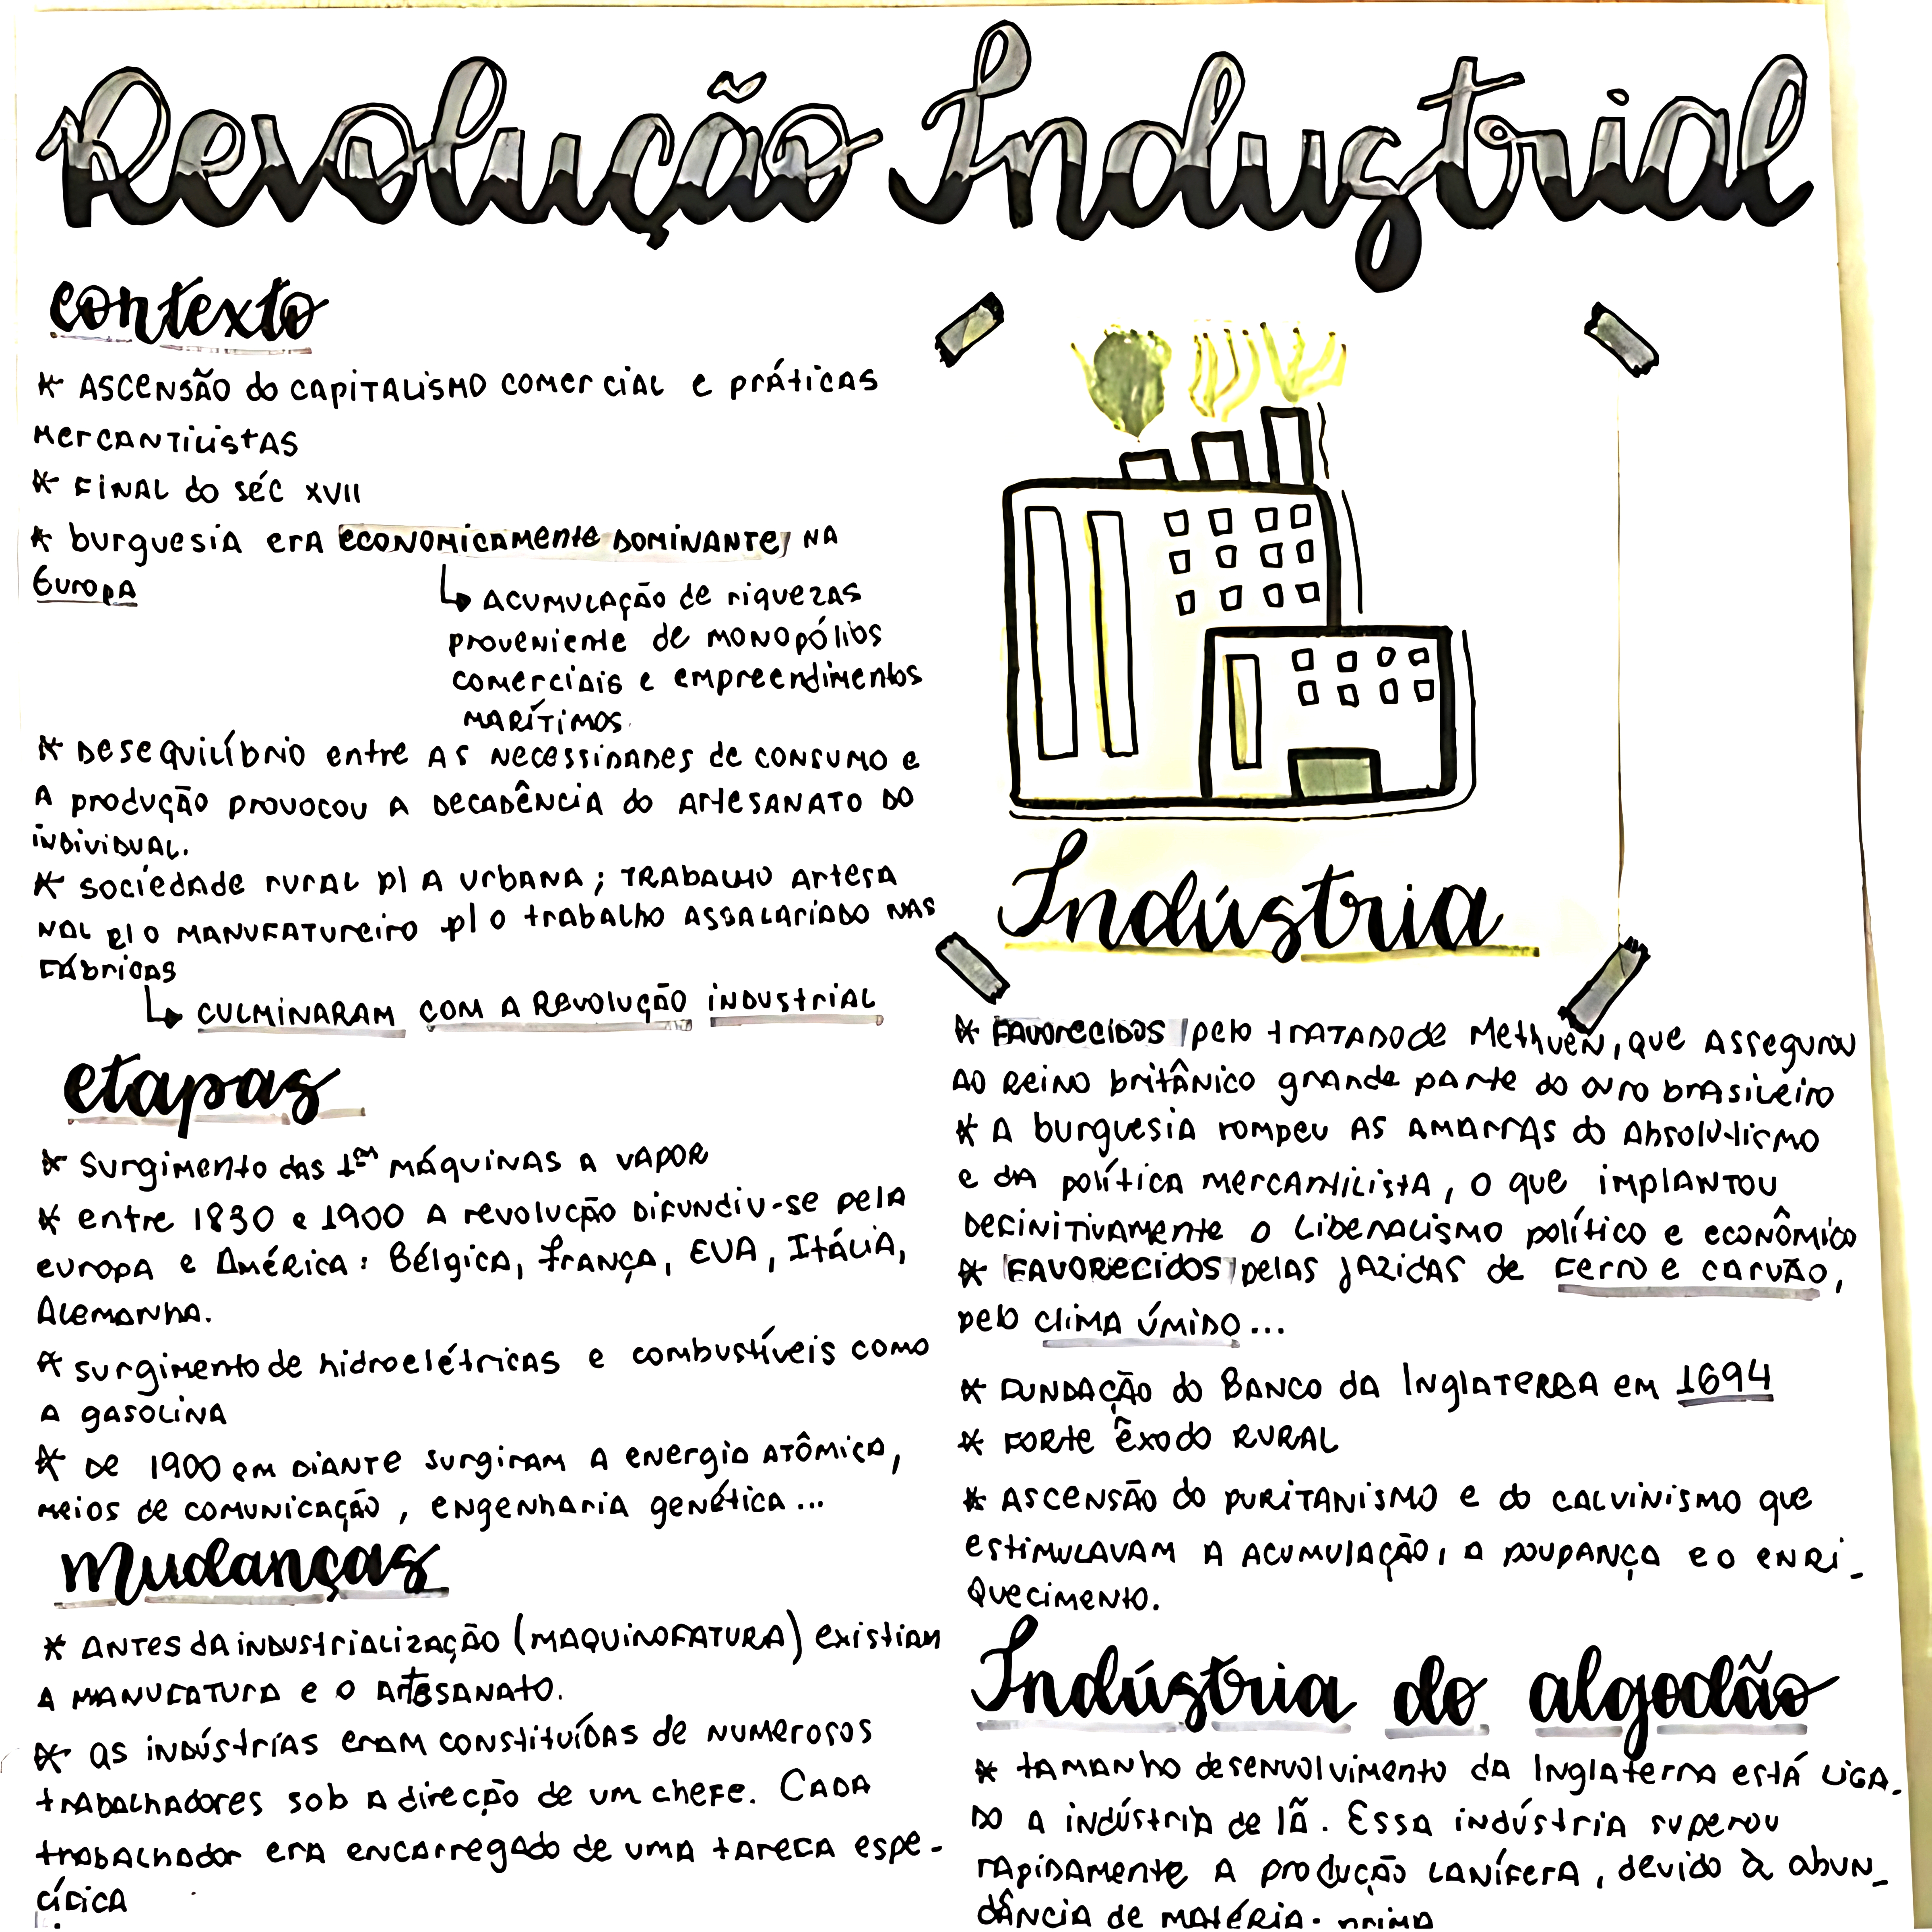 Revolução Industrial
contexto
* ASCENSÃO do CAPITALISMO COMERCIAL e PRÁTICAS
MERCANTILISTAS
* FINAL do SÉC XVII
* burguesia era ECONOMICAMENTE DOMINANTE NA
Europa
↳ ACUMULAÇÃO de riquezas
proveniente de MONOPÓLIOS
comerciais e empreendimentos
MARÍTIMOS.
* DESEQUILÍBRIO entre AS NECESSIDADES de CONSUMO e
A produção provocou A DECADÊNCIA do ARTESANATO DO
INDIVIDUAL.
* sociedade rural p/ A urbana; TRABALHO Artesa
NAL p/ O MANUFATUREIRO p/ O trabalho ASSALARIADO NAS
Fábricas
↳ CULMINARAM COM A REVOLUÇÃO INDUSTRIAL
etapas
* Surgimento das 1as MÁQUINAS A VAPOR
* entre 1830 e 1900 A revolução DIFUNDIU-se pela
europa e América: Bélgica, frança, EUA, ITÁLIA,
Alemanha.
* surgimento de hidroelétricas e combustíveis como
A gasolina
* De 1900 em DIANTE surgiram A energia ATÔMICA,
meios de comunicação, engenharia genética...
mudanças
* ANTES da industrialização (MAQUINOFATURA) existiam
A MANUFATURA e O ARTESANATO.
* as indústrias eram constituídas de numerosos
trabalhadores sob a direção de um chefe. Cada
trabalhador era encarregado de uma tarefa espe-
cífica
Indústria
* FAVORECIDOS pelo TRATADO de Methuen, que Assegurou
AO reino britânico grande parte do ouro brasileiro
* A burguesia rompeu AS AMARRAS do Absolutismo
e da política mercantilista, o que implantou
DEFINITIVAMENTE o Liberalismo político e econômico
* FAVORECIDOS pelas jazidas de Ferro e carvão,
pelo clima úmido...
* FUNDAÇÃO do BANCO da Inglaterra em 1694
* FORTE êxodo RURAL
* ASCENSÃO do PURITANISMO e do CALVINISMO que
estimulavam A ACUMULAÇÃO, A POUPANÇA e o enri-
quecimento.
Indústria do algodão
* tamanho desenvolvimento da Inglaterra está LIGA-
DO A indústria de lã. Essa indústria superou
rapidamente A produção Lanífera, devido à abun-
dância de matéria-prima